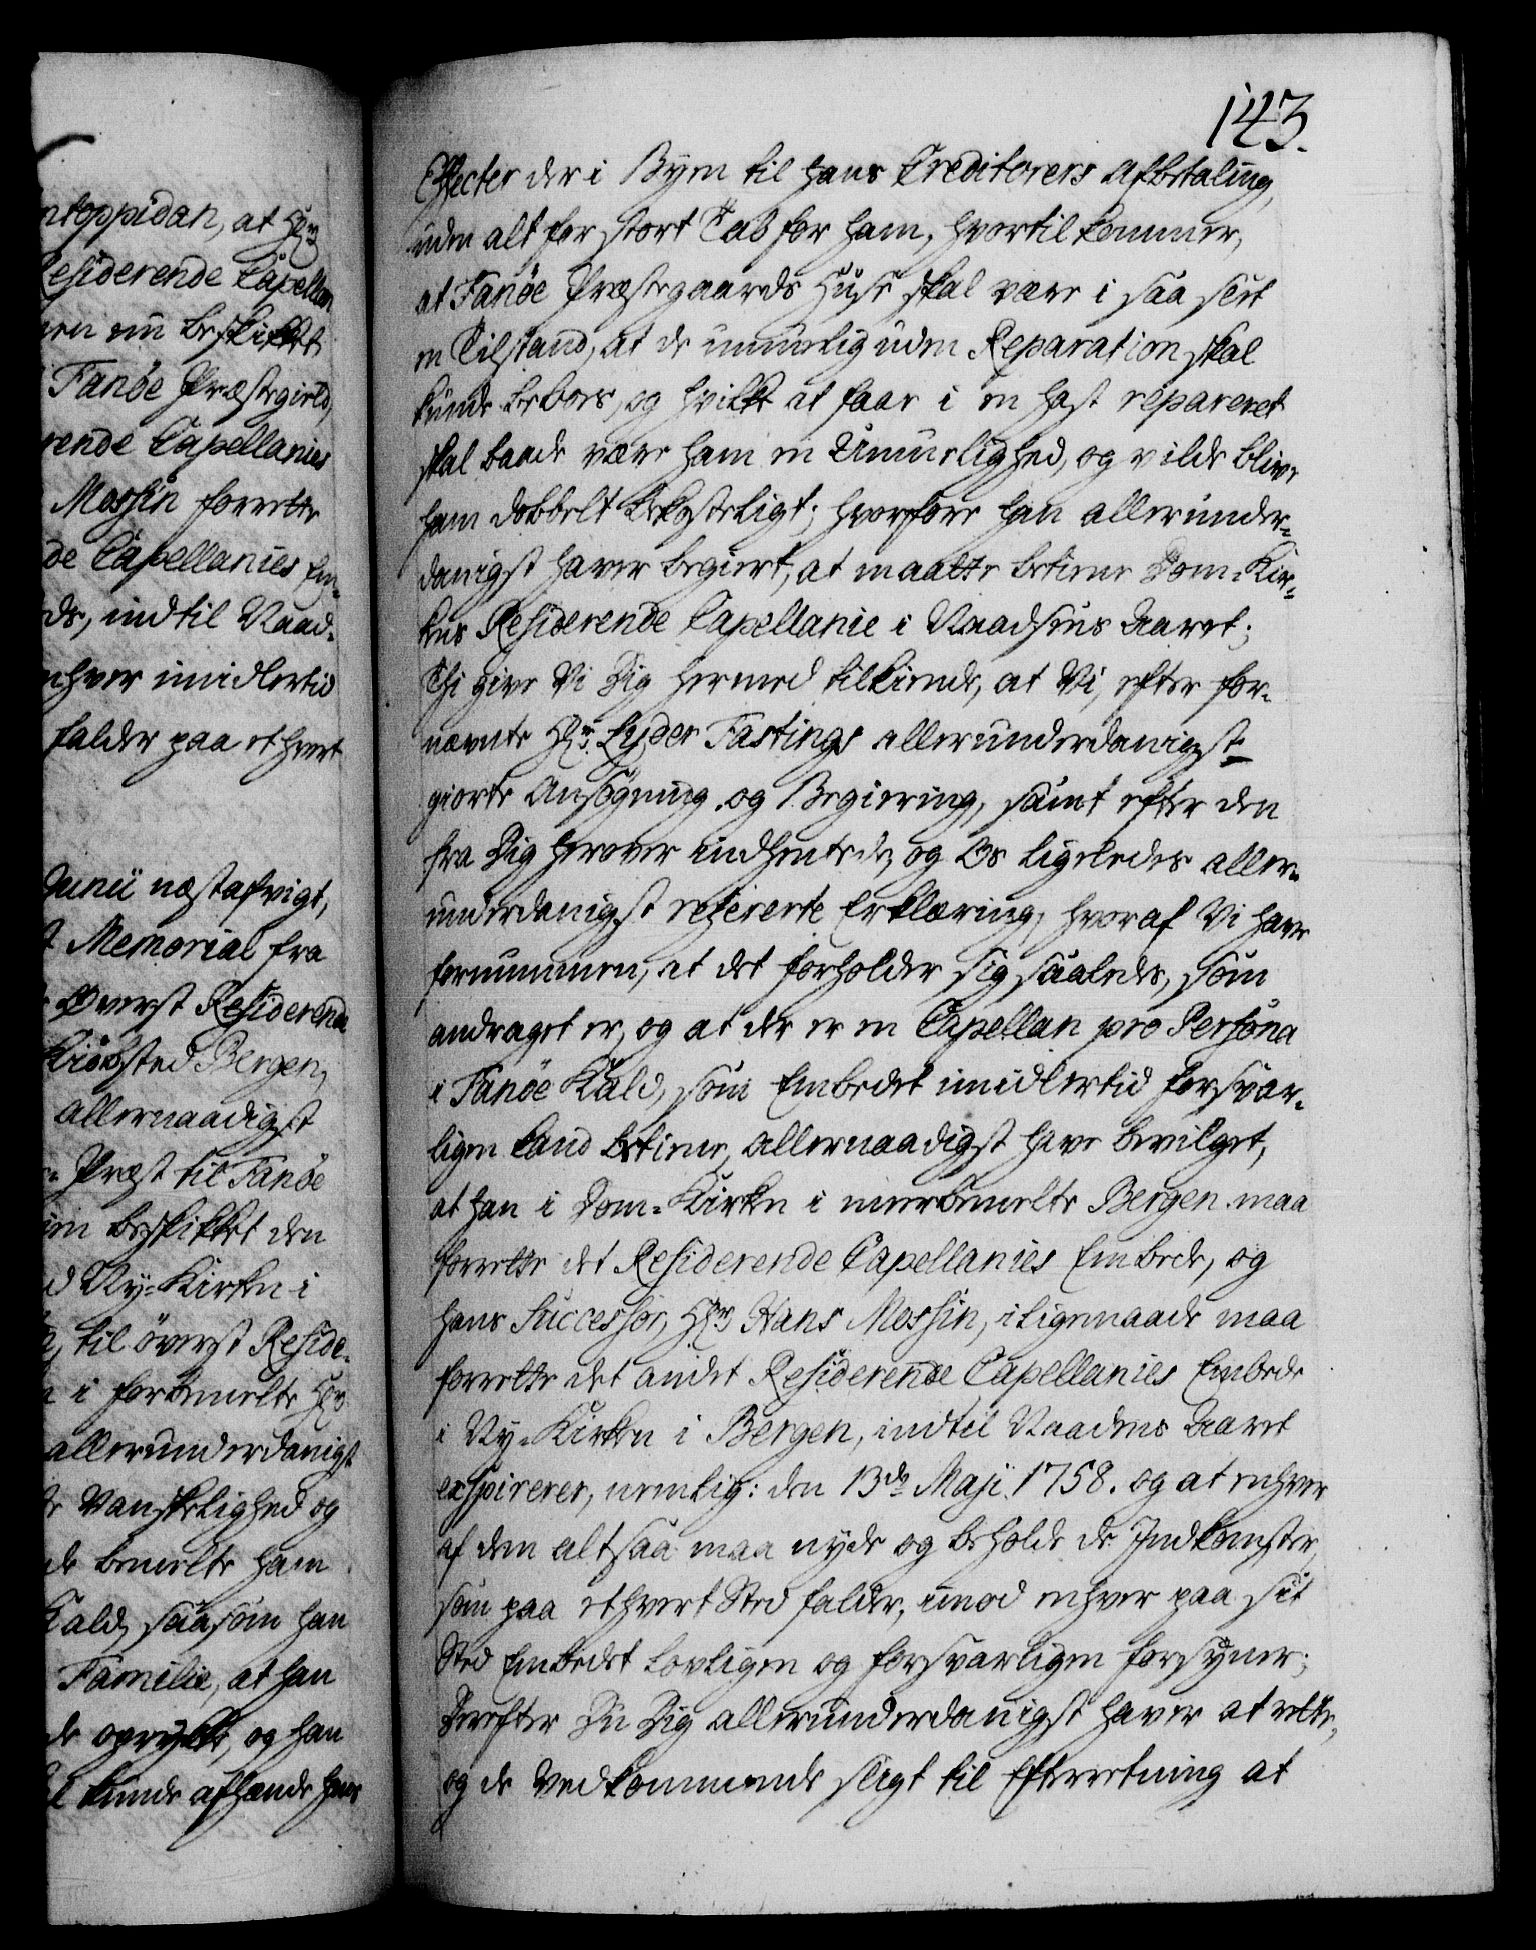 143.
Effecter der i Byen til hans Creditorers Afbetaling,
uden alt for stort Tab for ham, hvortil kommer,
at Fanöe Præstegaards Huse skal være i saa slet
en Tilstand, at de umuelig uden Reparation skal
kunde beboes, og hvilket at faae i en hast repareret
skal baade være ham en Umuelighed, og vilde blive
ham dobbelt bekosteligt; hvorfore han allerunder-
danigst haver begiert, at maatte betiene Dom-Kir-
kens Residerende Capellanie i Naadsens Aaret;
Thi give Vi Dig hermed tilkiende, at Vi, efter for-
nævnte Hr. Lyder Fastings allerunderdanigst
giorte Ansögning og Begiering, samt efter den
fra Dig herover indhentede, og Os ligeledes aller-
underdanigst refererte Erklæring, hvoraf Vi have
fornummen, at det forholder sig saaledes, som
andraget er, og at der er en Capellan pro Persona
i Fanöe Kald, som Embedet imidlertid forsvar-
ligen kand betiene, allernaadigst have bevilget,
at han i Dom-Kirken i meerbemelte Bergen maa
forrette det Residerende Capellanies Embede, og
hans Successor, Hr. Hans Mossin, i ligemaade maa
forrette det andet Residerende Capellanies Embede
i Ny-Kirken i Bergen, indtil Naadens Aaret
exspirerer, nemlig: den 13de Maji 1758. og at enhver
af dem altsaa maa nyde og beholde de Indkomster,
som paa ethvert Sted falder, imod enhver paa sit
Sted Embedet lovligen og forsvarligen forsyner;
Derefter Du Dig allerunderdanigst haver at rette,
og de Vedkommende sligt til Efterretning at
ntoppidan, at Hr
Residerende Capellan
en nu beskikket
Fanöe Præstegield,
rende Capellanies
Mossin forrette
de Capellanies Em-
de, indtil Naad-
nhver imidlertid
falder paa ethvert
Junii næstafvigt,
t Memorial fra
Överst Residerende
Kiöbsted Bergen,
allernaadigst
Præst til Fanöe
en beskikket den
d Ny-Kirken i
til överst Reside-
i forbemelte Hr
allerunderdanigst
Vanskelighed og
de bemelte ham
Kald, saasom han
Familie, at han
de oprykke, og han
kunde afhænde hans